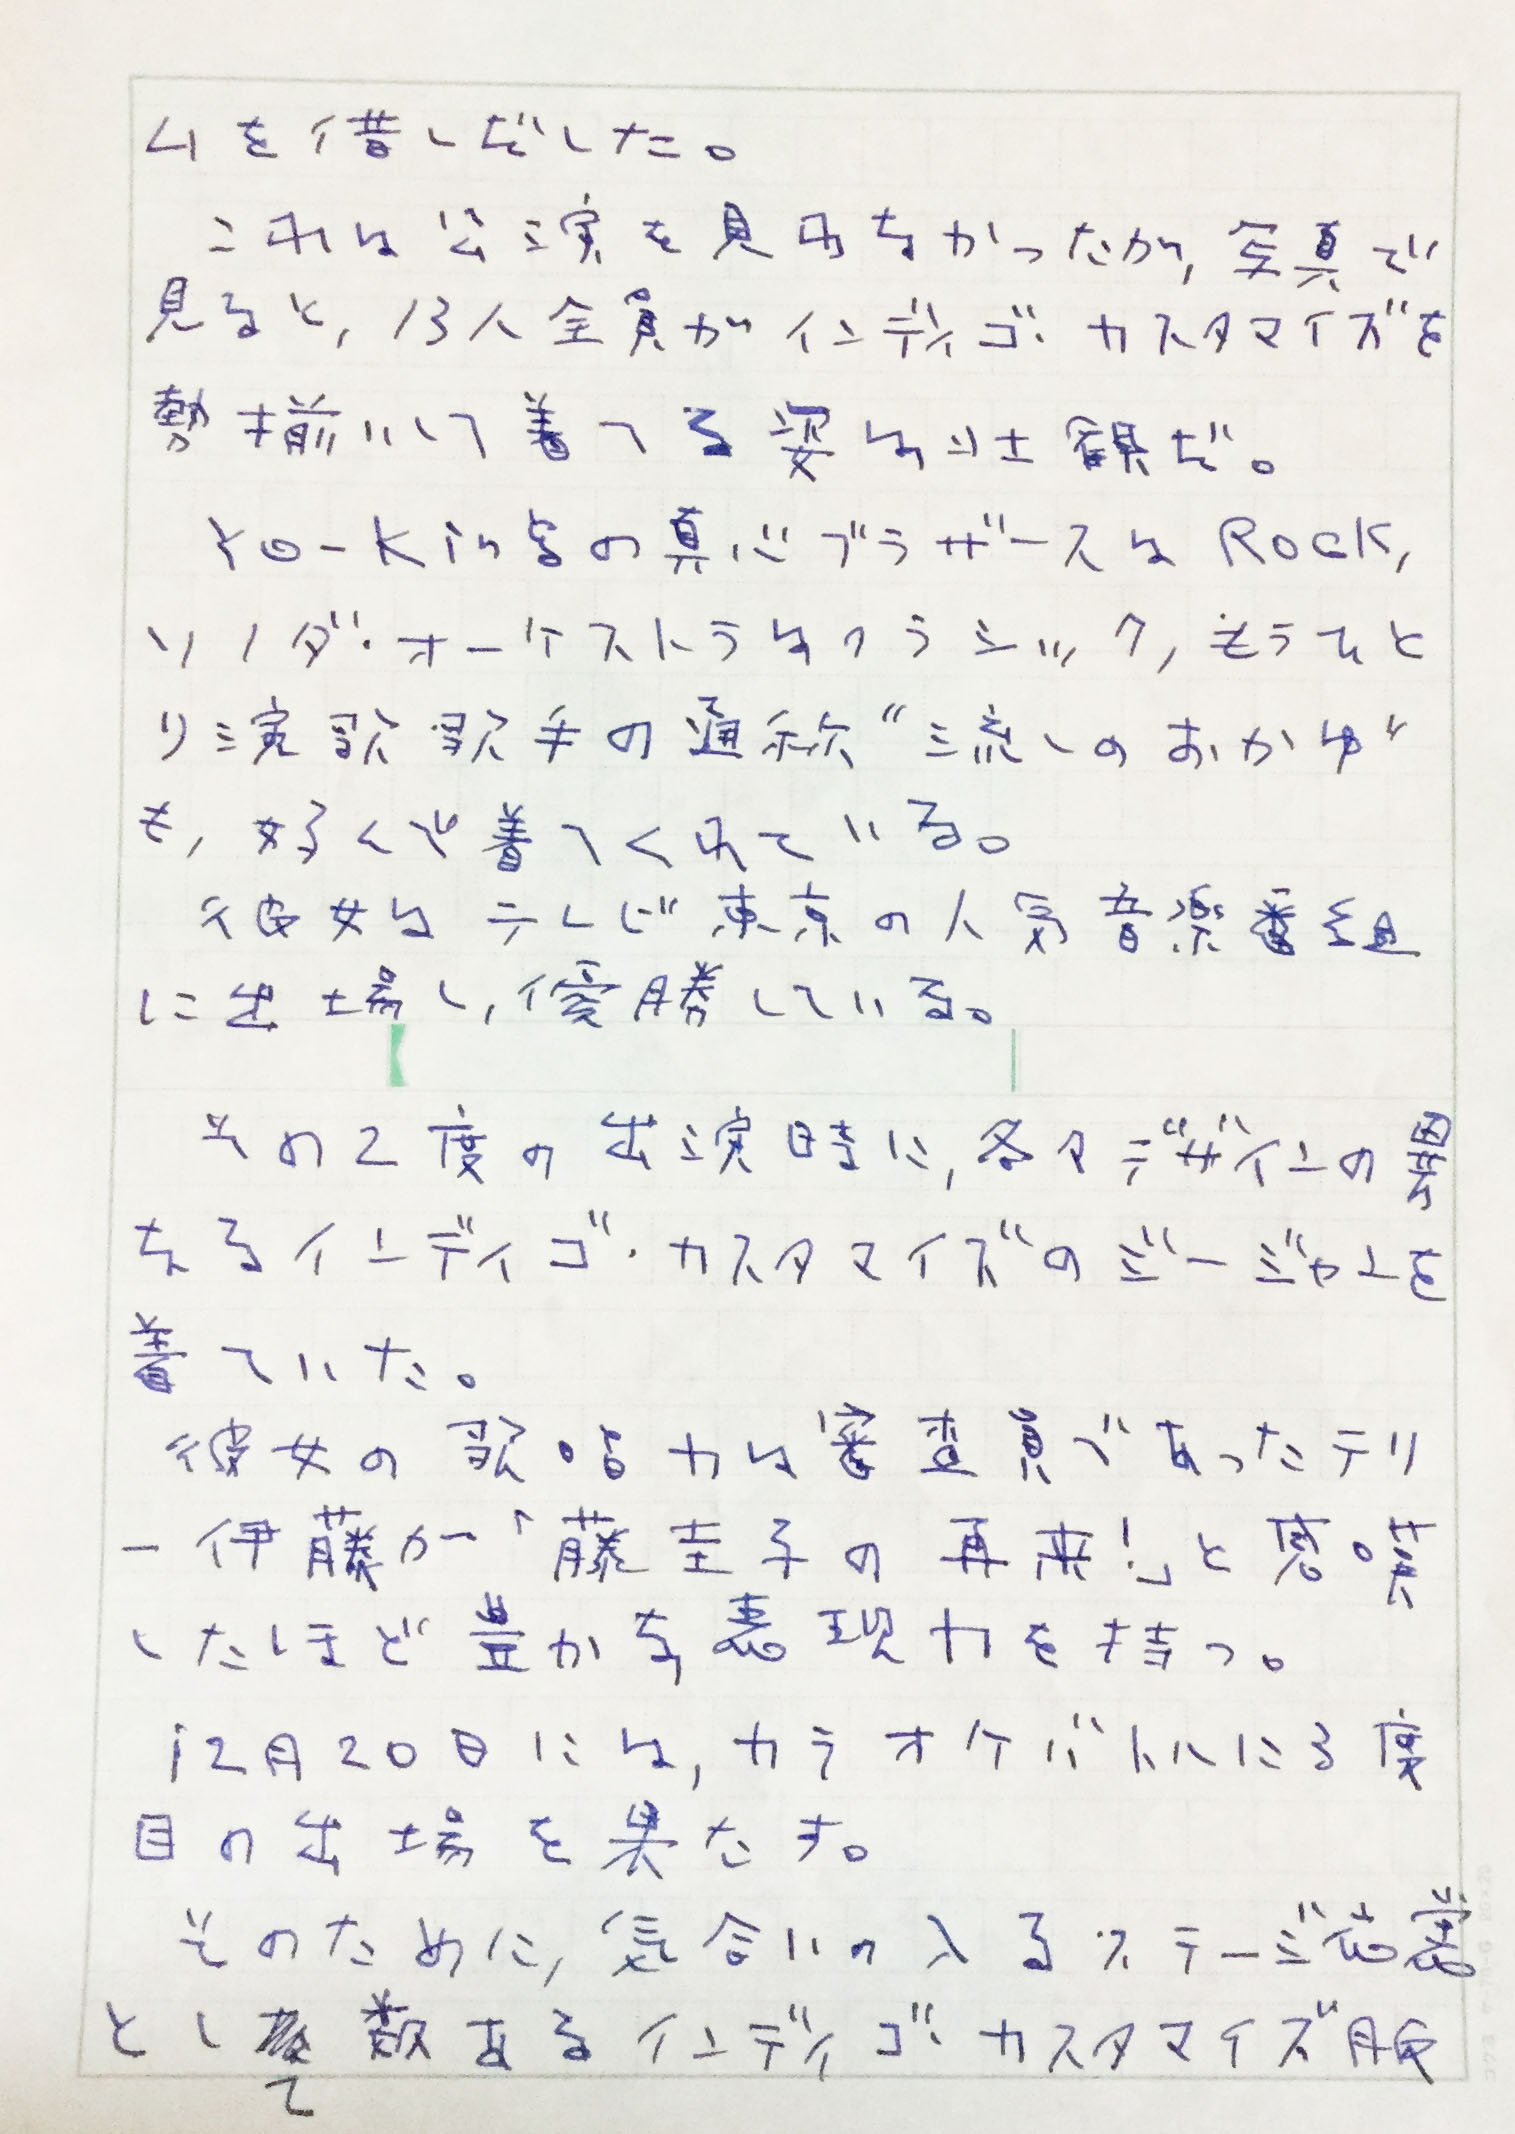 ムを借しだした。
これは公演を見れなかったが,写真で
見ると,13人全員がインディゴ・カスタマイズを
勢揃いして着てる姿は壮観だ。
Yo-Kingの真心ブラザースはRocK,
ソノダ・オーケストラはクラシック,もうひと
り演歌歌手の通称“流しのおかゆ”
も,好んで着てくれている。
彼女はテレビ東京の人気音楽番組
に出場し,優勝している。
その2度の出演時に,各々デザインの異
なるインディゴ・カスタマイズのジージャンを
着ていた。
彼女の歌唱力は審査員であったテリ
ー伊藤が「藤圭子の再来!」と感嘆
したほど豊かな表現力を持つ。
12月20日には,カラオケバトルに3度
目の出場を果たす。
そのために,気合いの入るステージ衣裳
として数あるインディゴ・カスタマイズ服